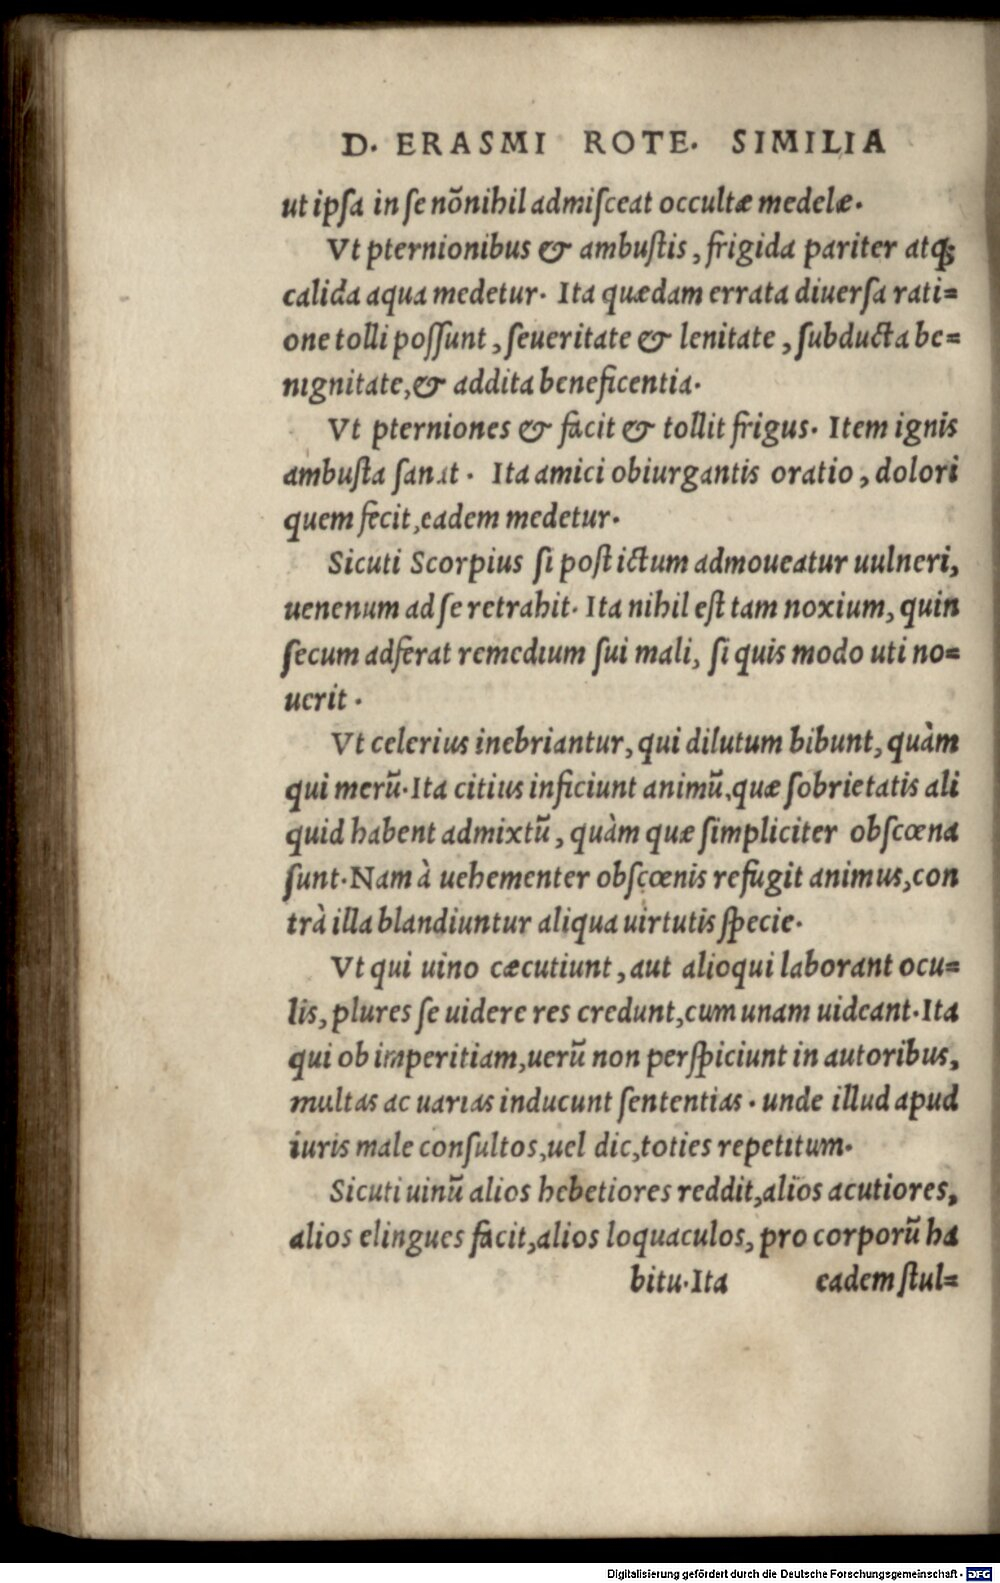 D. ERASMI ROTE. SIMILIA
ut ipſa in ſe nõnihil admiſceat occultæ medelæ.
Vt pternionibus & ambuſtis, frigida pariter atq;
calida aqua medetur. Ita quædam errata diuerſa rati=
one tolli poſſunt, ſeueritate & lenitate, ſubducta be=
nignitate, & addita beneficentia.
Vt pterniones & facit & tollit frigus. Item ignis
ambuſta ſanat. Ita amici obiurgantis oratio, dolori
quem fecit, eadem medetur.
Sicuti Scorpius ſi poſt ictum admoueatur uulneri,
uenenum ad ſe retrahit. Ita nihil eſt tam noxium, quin
ſecum adferat remedium ſui mali, ſi quis modo uti no=
uerit.
Vt celerius inebriantur, qui dilutum bibunt, quàm
qui merũ. Ita citius inficiunt animũ, quæ ſobrietatis ali
quid habent admixtũ, quàm quæ ſimpliciter obſcœna
ſunt. Nam à uehementer obſcœnis refugit animus, con
trà illa blandiuntur aliqua uirtutis ſpecie.
Vt qui uino cæcutiunt, aut alioqui laborant ocu=
lis, plures ſe uidere res credunt, cum unam uideant. Ita
qui ob imperitiam, uerũ non perſpiciunt in autoribus,
multas ac uarias inducunt ſententias. unde illud apud
iuris male conſultos, uel dic, toties repetitum.
Sicuti uinũ alios hebetiores reddit, alios acutiores,
alios elingues facit, alios loquaculos, pro corporũ ha
bitu. Ita eadem ſtul=
Digitalisierung gefördert durch die Deutsche Forschungsgemeinschaft - DFG